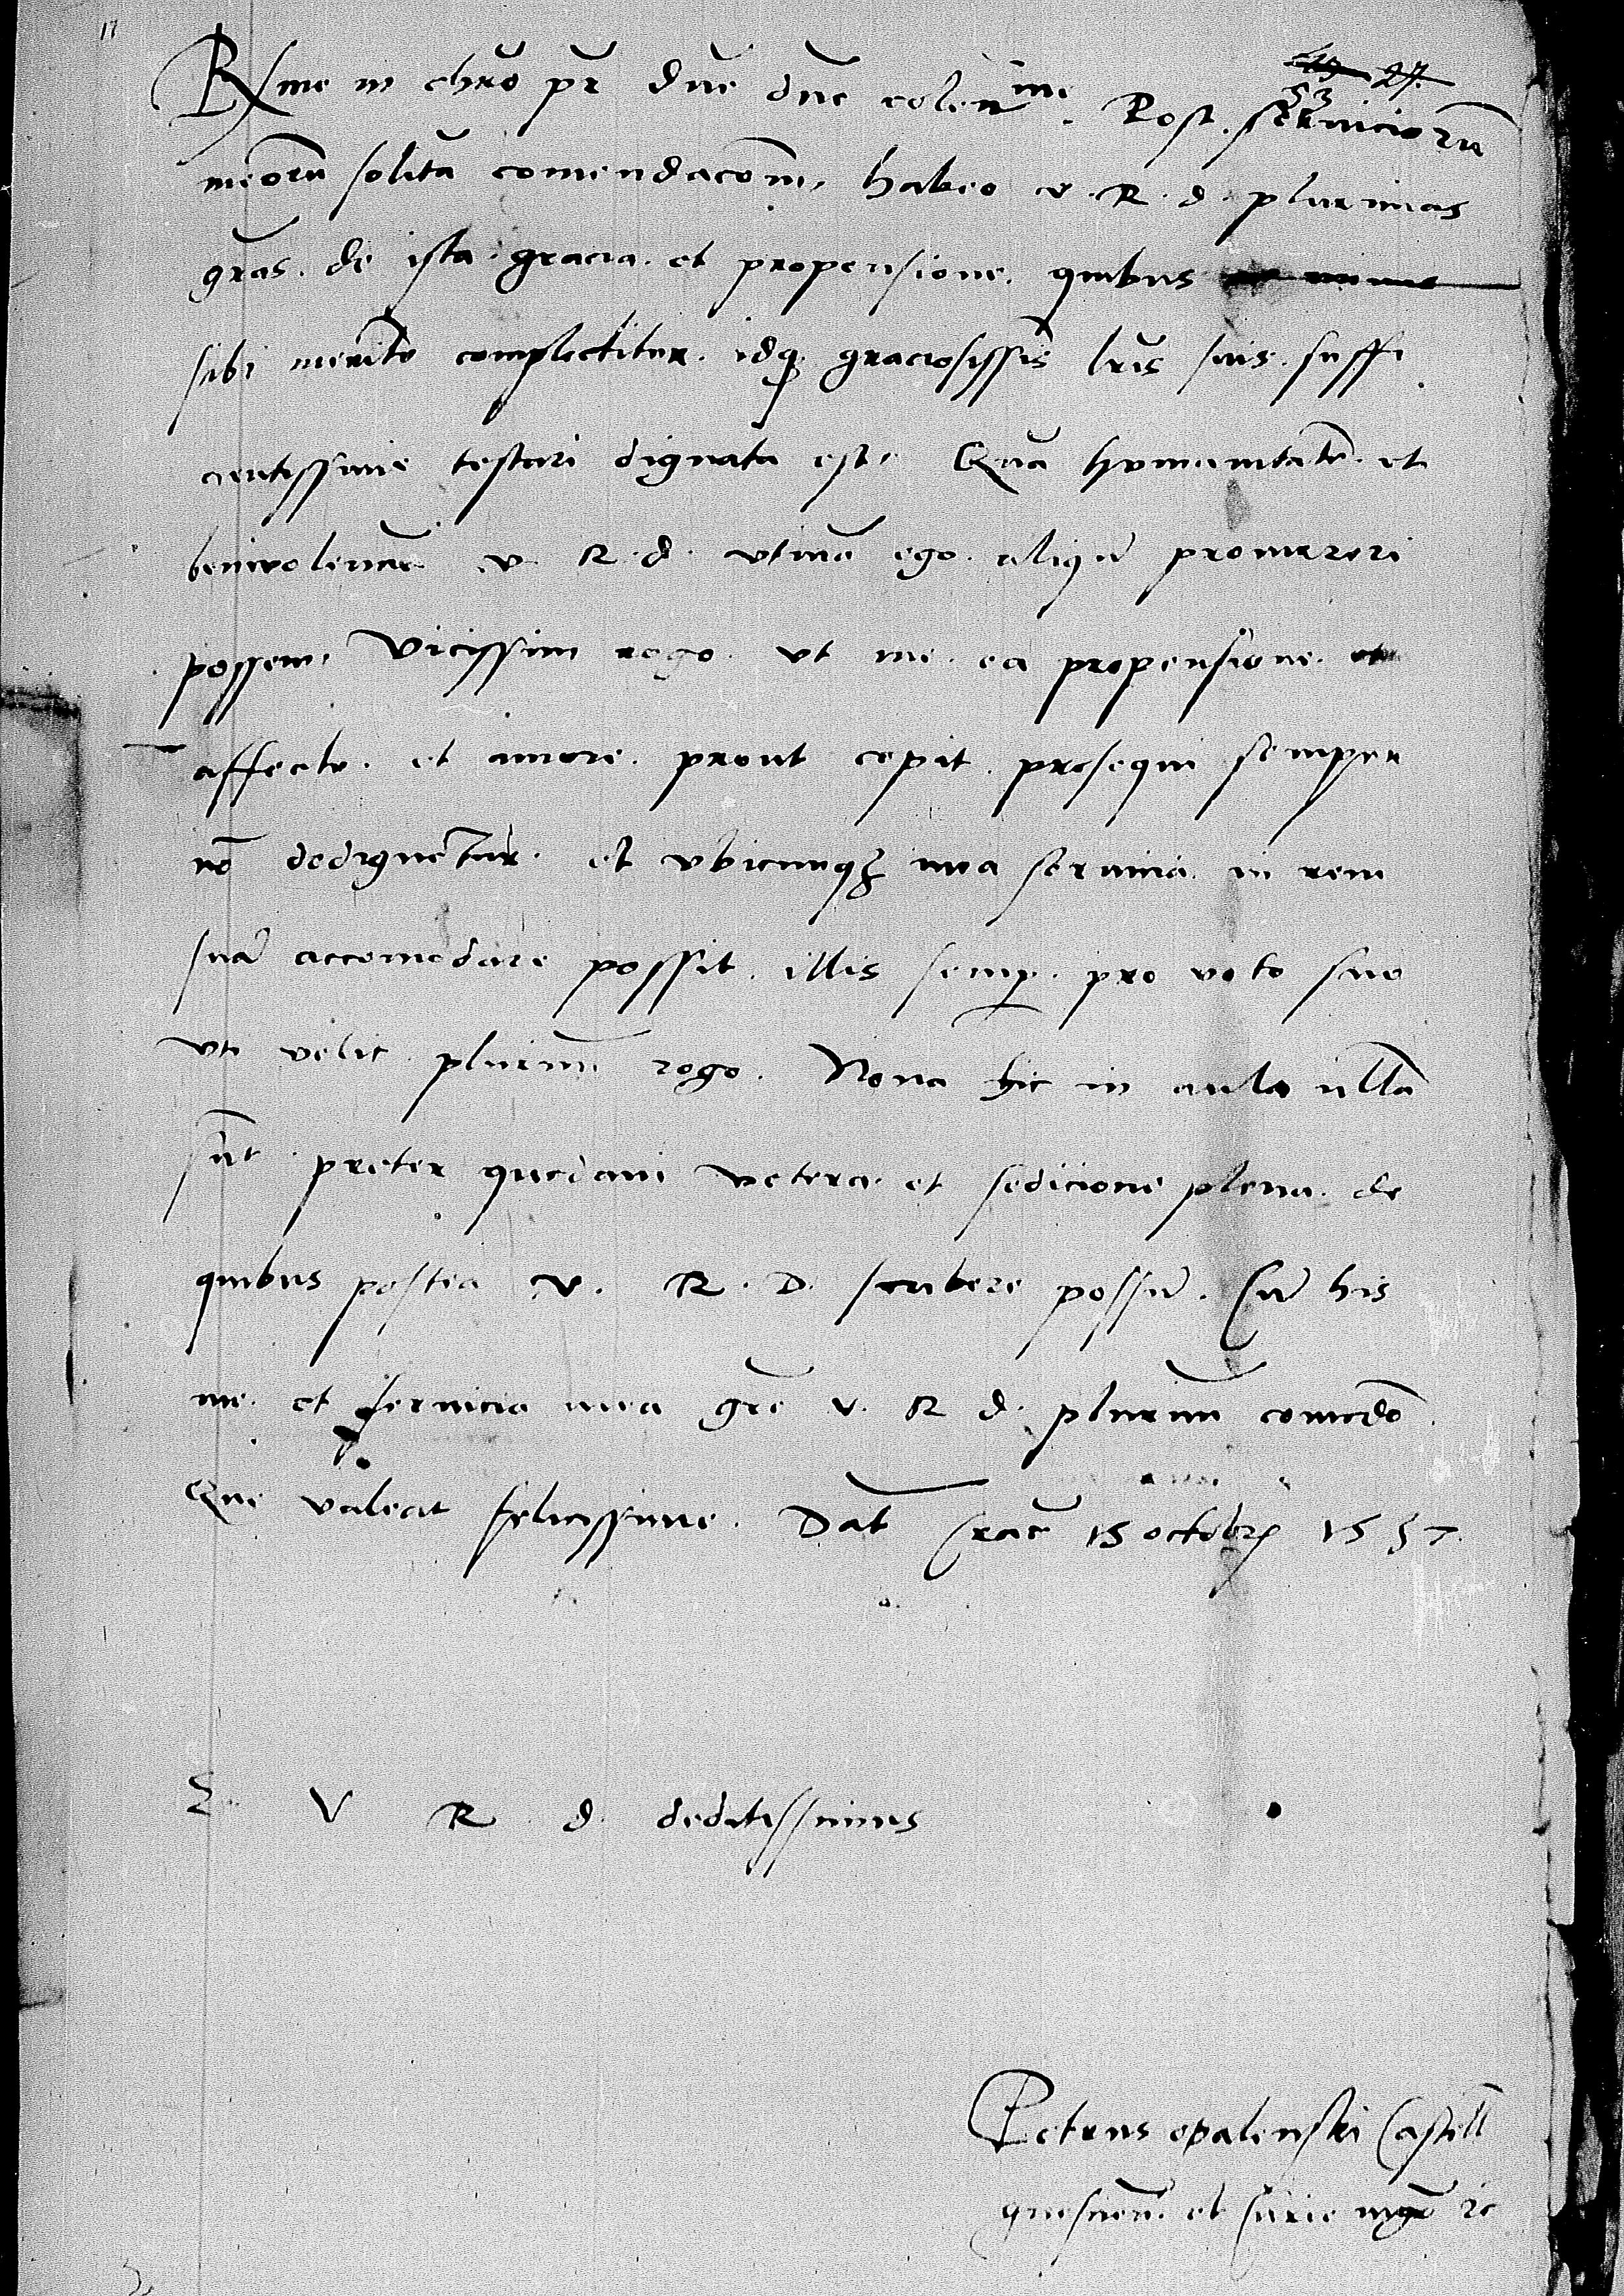 17
27.
53
R͞sme in chro pr dne dne colenme. Post serviciorũ
meorũ solitã comendacoem, habeo v. R. d. plurimas
gras. de ista gracia et propensione. quibus
sibi merito complectitur. idq graciosissis lris suis suffi
cientissime testari dignata est. Quã humanitatẽ et
benivolenciã v. R. d. utinã ego aliqñ promereri
possem, Vicissim rogo ut me ea propensione et
affectu. et amore. prout cepit prosequi semper
nõ dedignetur. et ubicunqȝ mea servicia in rem
suã accomodare possit. illis semp. pro voto suo
uti velit plurimũ rogo. Nova hic in aula nulla
sũt preter quedam vetera et sedicione plena. de
quibus postea V. R. D. scribere possũ. Cũ his
me et servicia mea gre v. R d. plurimũ comẽdo.
Que valeat felicissime. Dat Crac 15 octobr 1537.
E V R d. deditissimus
Petrus opalenski Castell
gnesnen. et curie mgr ꝛc